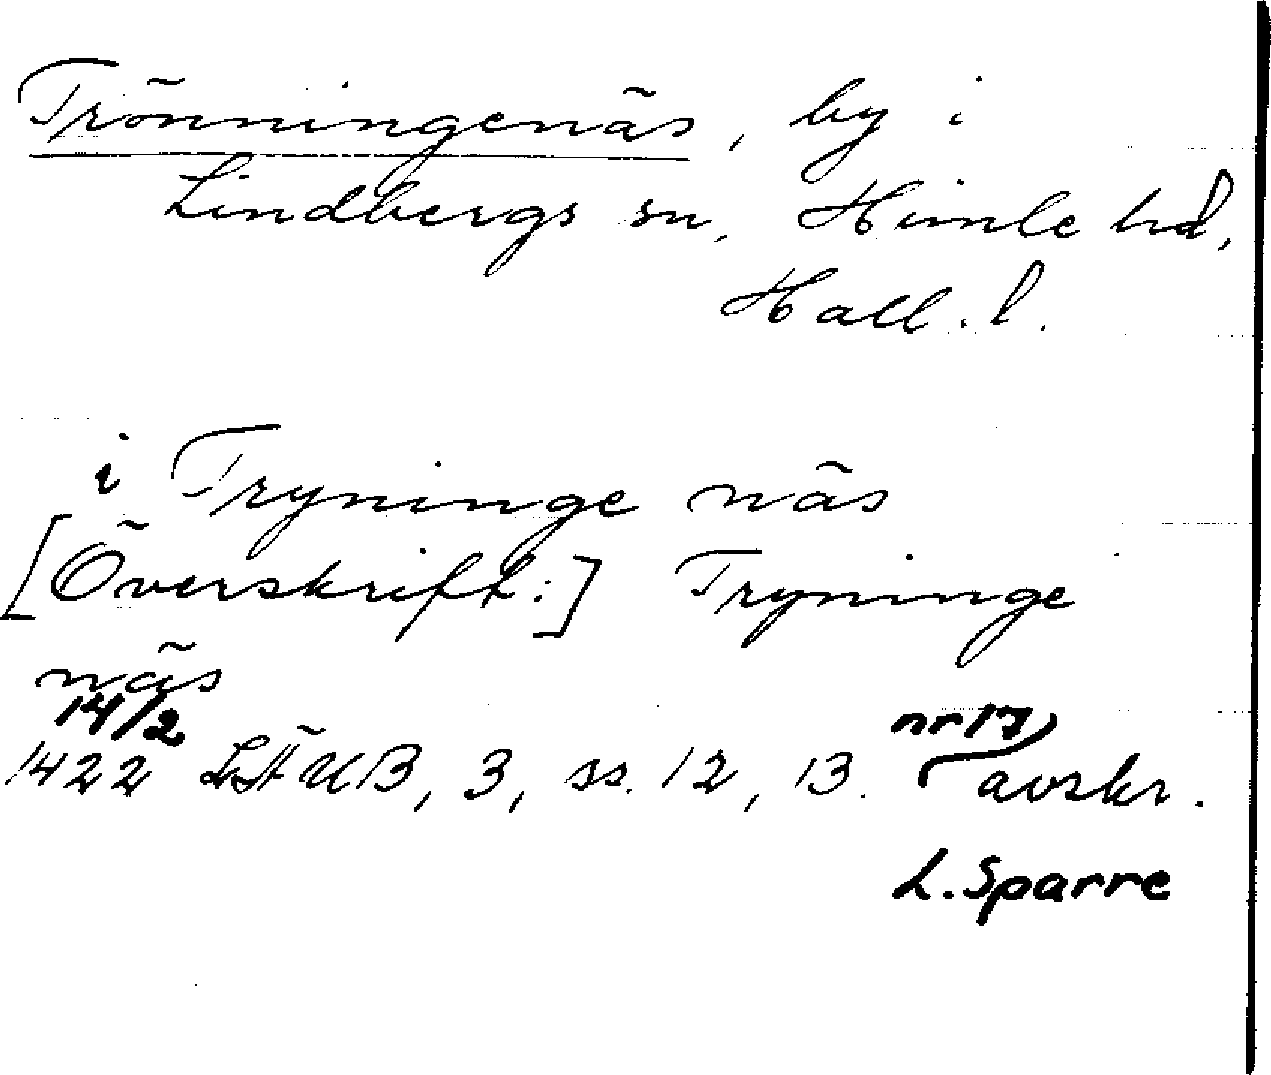 Trönningenäs, by i
Lindbergs sn, Himle hd,
Hall. l.
i Tryninge näs
[Överskrift:] Tryninge
näs
14/2 nr 17,
1422 LÄUB, 3, ss. 12, 13. avskr.
L. Sparre